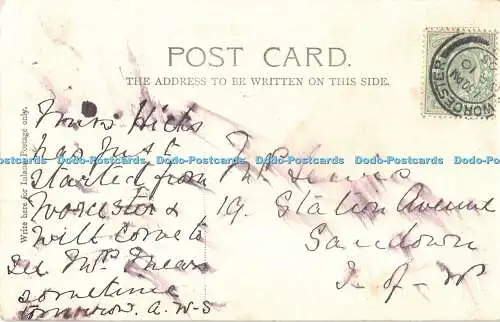 POST CARD.
THE ADDRESS TO BE WRITTEN ON THIS SIDE.
Write here for Inland Postage only.
WORCESTER
Hicks
has just
started from
Worcester &
will come to
see Mrs Mears
sometime
tomorrow. A. W-S
Mrs
19. Station Avenue
Sandown
I- of- W
Dodo-Postcards Dodo-Postcards Dodo-Postcards Dodo-Postcards Dodo-Postcards